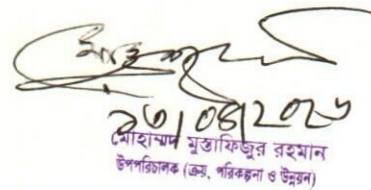 ২৩/০৪/২০২৬
মোহাম্মদ মুস্তাফিজুর রহমান
উপপরিচালক (ক্রয়, পরিকল্পনা ও উন্নয়ন)